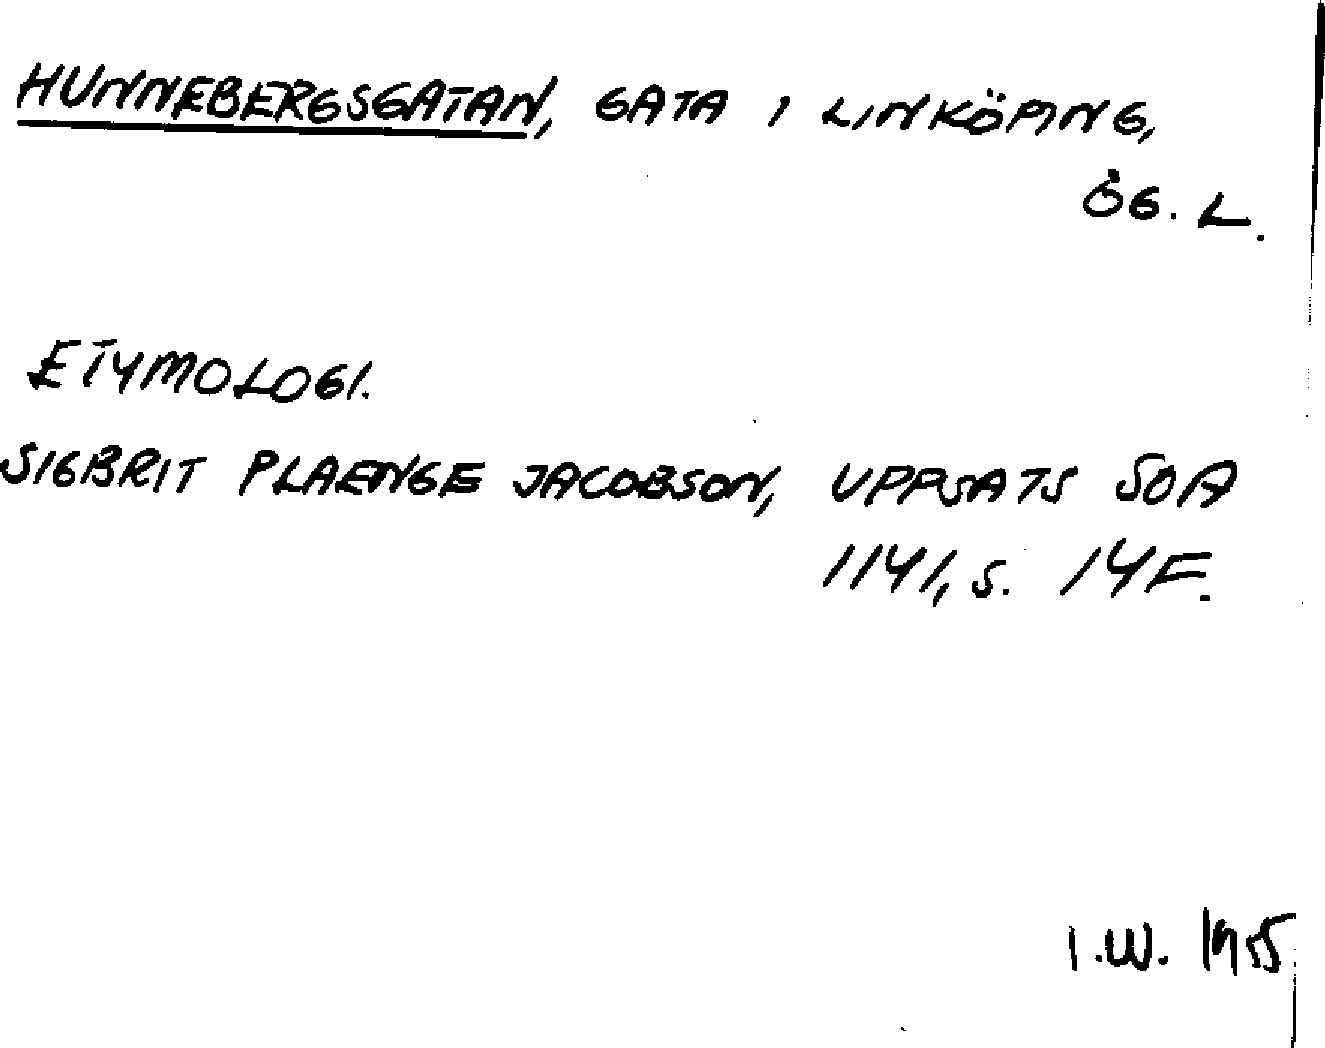 HUNNEBERGSGATAN, GATA I LINKÖPING,
ÖG. L.
ETYMOLOGI.
SIGBRIT PLAENGE JACOBSON, UPPSATS SOA
1141, S. 14F.
I.W.